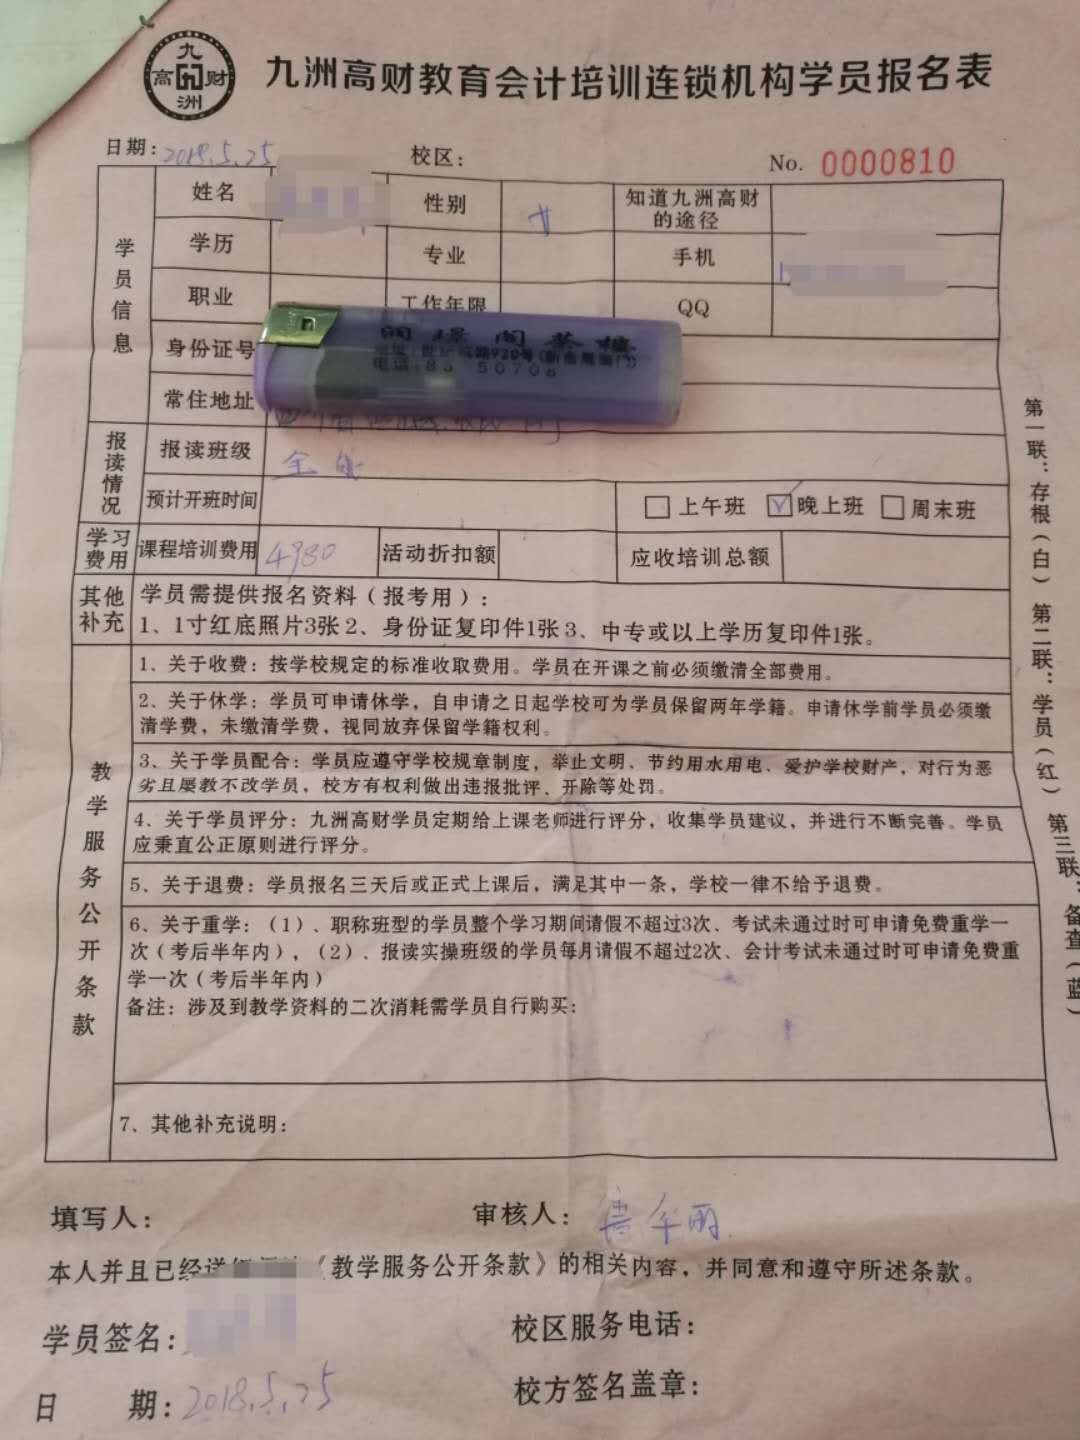 九
高 财
洲
九洲高财教育会计培训连锁机构学员报名表
日期：2018.5.25 校区： No. 0000810
学员信息
姓名 性别 女 知道九洲高财的途径
学历 专业 手机
职业 工作年限 QQ
身份证号
电话:85 50706
常住地址
报读情况
报读班级 全能
预计开班时间 上午班 晚上班 周末班
学习费用 课程培训费用 4980 活动折扣额 应收培训总额
其他补充 学员需提供报名资料（报考用）：
1、1寸红底照片3张 2、身份证复印件1张 3、中专或以上学历复印件1张。
教学服务公开条款
1、关于收费：按学校规定的标准收取费用。学员在开课之前必须缴清全部费用。
2、关于休学：学员可申请休学，自申请之日起学校可为学员保留两年学籍。申请休学前学员必须缴
清学费，未缴清学费，视同放弃保留学籍权利。
3、关于学员配合：学员应遵守学校规章制度，举止文明、节约用水用电、爱护学校财产，对行为恶
劣且屡教不改学员，校方有权利做出违报批评、开除等处罚。
4、关于学员评分：九洲高财学员定期给上课老师进行评分，收集学员建议，并进行不断完善。学员
应秉直公正原则进行评分。
5、关于退费：学员报名三天后或正式上课后，满足其中一条，学校一律不给予退费。
6、关于重学：（1）、职称班型的学员整个学习期间请假不超过3次、考试未通过时可申请免费重学一
次（考后半年内），（2）、报读实操班级的学员每月请假不超过2次、会计考试未通过时可申请免费重
学一次（考后半年内）
备注：涉及到教学资料的二次消耗需学员自行购买：
7、其他补充说明：
第一联：存根（白） 第二联：学员（红） 第三联：备查（蓝）
填写人： 审核人：
本人并且已经 《教学服务公开条款》的相关内容，并同意和遵守所述条款。
学员签名： 校区服务电话：
日 期：2018.5.25 校方签名盖章：